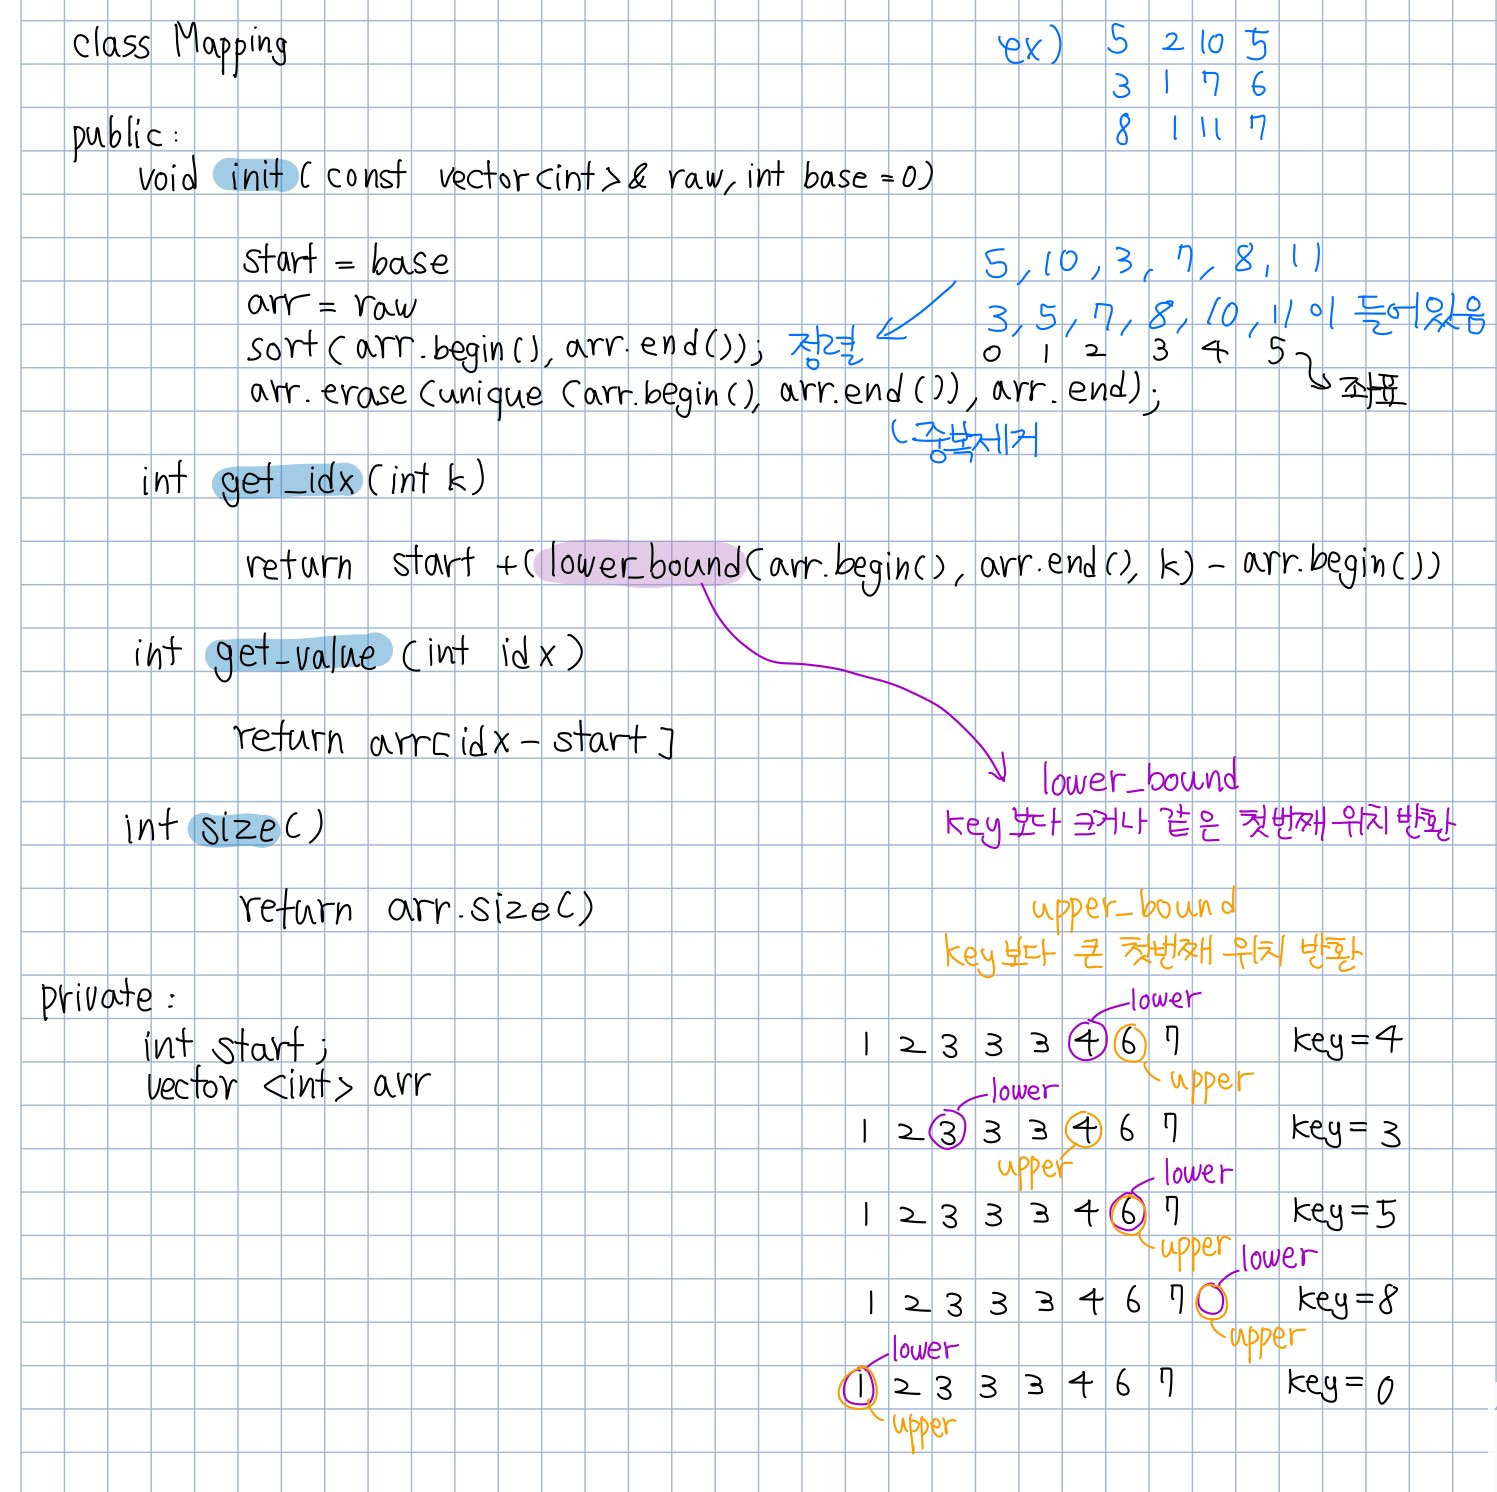 class Mapping
ex) 5 2 10 5
3 1 7 6
8 1 11 7
public:
void init( const vector<int>& raw, int base = 0)
start = base
5, 10, 3, 7, 8, 11
arr = raw
3, 5, 7, 8, 10, 11 이 들어있음
sort( arr.begin(), arr.end()); 정렬
0 1 2 3 4 5
좌표
arr.erase(unique (arr.begin(), arr.end()), arr.end);
중복제거
int get_idx(int k)
return start +( lower_bound(arr.begin(), arr.end(), k) - arr.begin())
int get_value (int idx)
return arr[idx - start]
lower_bound
key보다 크거나 같은 첫번째 위치 반환
int size()
return arr.size()
upper_bound
key보다 큰 첫번째 위치 반환
private:
int start;
vector <int> arr
lower
1 2 3 3 3 4 6 7 key=4
upper
lower
1 2 3 3 3 4 6 7 key= 3
upper
lower
1 2 3 3 3 4 6 7 key=5
upper
lower
1 2 3 3 3 4 6 7 key=8
upper
lower
1 2 3 3 3 4 6 7 key= 0
upper